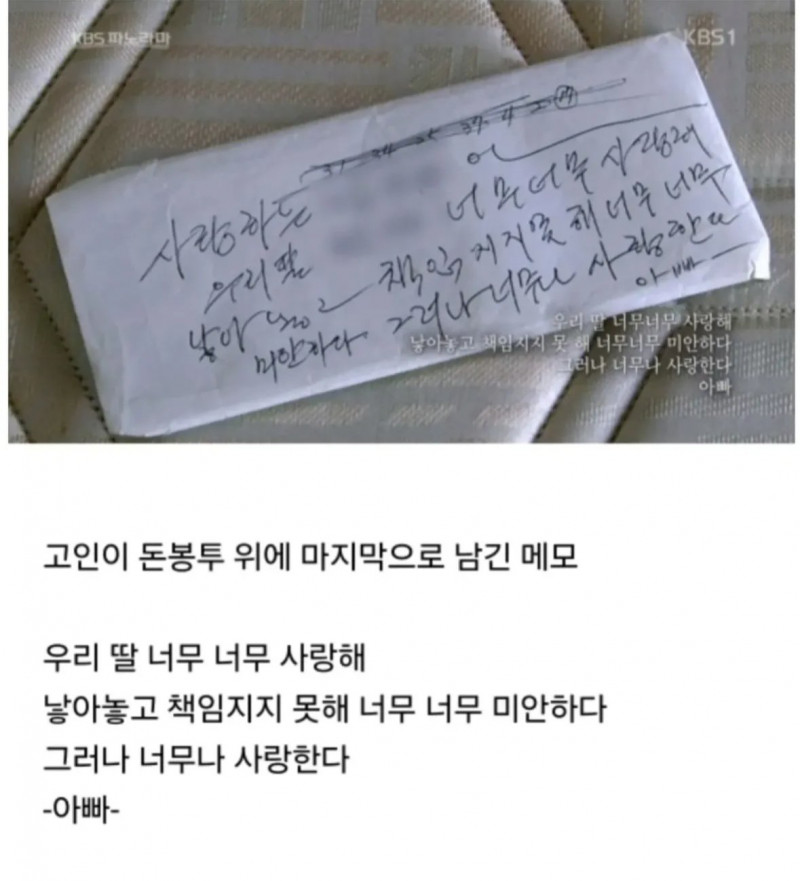 KBS 파노라마
KBS1
31 34 25 37 4 2 19
사랑하는
우리 딸
너무너무 사랑해
낳아놓고 책임지지못해 너무 너무
미안하다 그러나 너무나 사랑한다
아빠
우리 딸 너무너무 사랑해
낳아놓고 책임지지 못 해 너무너무 미안하다
그러나 너무나 사랑한다
아빠
고인이 돈봉투 위에 마지막으로 남긴 메모
우리 딸 너무 너무 사랑해
낳아놓고 책임지지 못해 너무 너무 미안하다
그러나 너무나 사랑한다
-아빠-